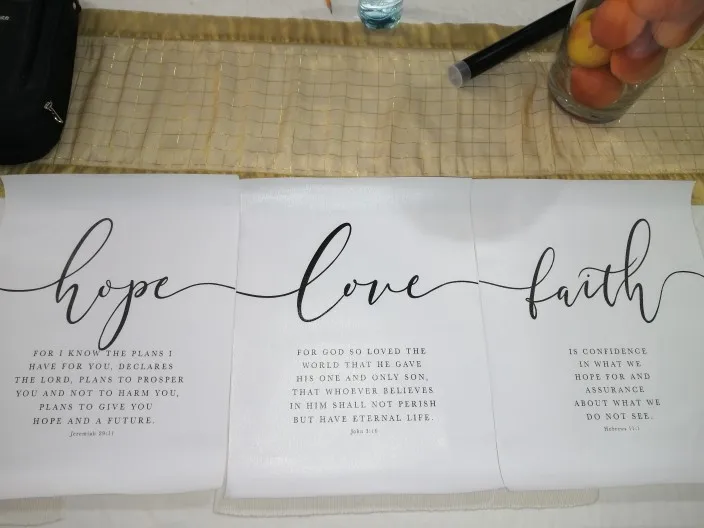 hope
FOR I KNOW THE PLANS I
HAVE FOR YOU, DECLARES
THE LORD, PLANS TO PROSPER
YOU AND NOT TO HARM YOU,
PLANS TO GIVE YOU
HOPE AND A FUTURE.
Jeremiah 29:11
love
FOR GOD SO LOVED THE
WORLD THAT HE GAVE
HIS ONE AND ONLY SON,
THAT WHOEVER BELIEVES
IN HIM SHALL NOT PERISH
BUT HAVE ETERNAL LIFE.
John 3:16
faith
IS CONFIDENCE
IN WHAT WE
HOPE FOR AND
ASSURANCE
ABOUT WHAT WE
DO NOT SEE.
Hebrews 11:1